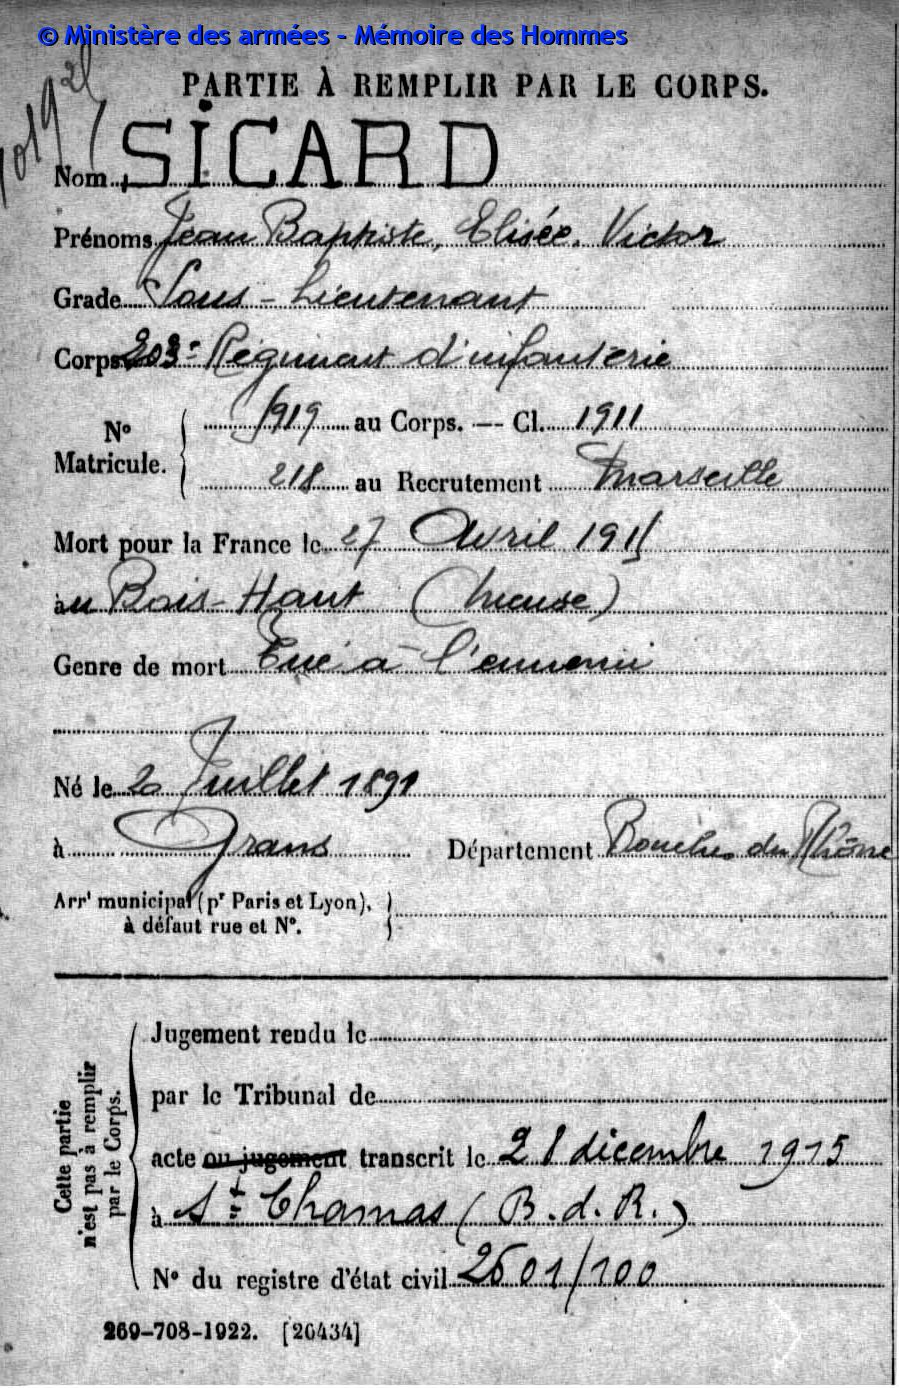 © Ministère des armées - Mémoire des Hommes
PARTIE À REMPLIR PAR LE CORPS.
Nom SICARD
Prénoms Jean Baptiste, Elisée, Victor
Grade Sous-Lieutenant
Corps 203e Régiment d'infanterie
N° Matricule. { 5919 au Corps. — Cl. 1911
218 au Recrutement Marseille
Mort pour la France le 27 Avril 1915
au Bois-Haut (Meuse)
Genre de mort Tué à l'ennemi
Né le 20 Juillet 1891
à Grans Département Bouches du Rhône
Arrt municipal (pr Paris et Lyon),
à défaut rue et N°.
Cette partie n'est pas à remplir par le Corps.
Jugement rendu le
par le Tribunal de
acte ou jugement transcrit le 28 décembre 1915
à St Chamas (B.d.R.)
N° du registre d'état civil 2601/100
269-708-1922. [26434]